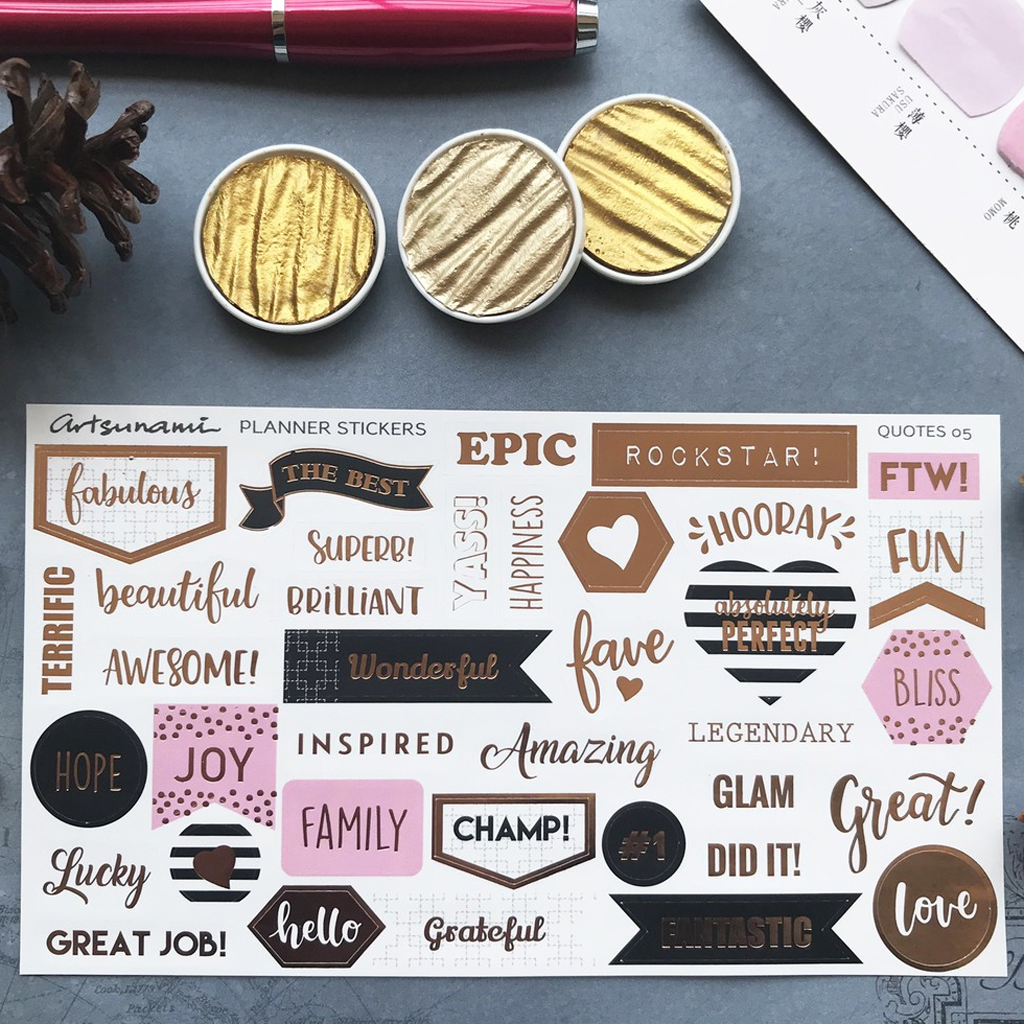 灰櫻
薄櫻
USU
SAKURA
桃
MOMO
artsunami PLANNER STICKERS
QUOTES 05
fabulous
THE BEST
EPIC
ROCKSTAR!
FTW!
SUPERB!
YASS!
HAPPINESS
HOORAY
FUN
TERRIFIC
beautiful
BRILLIANT
absolutely
PERFECT
AWESOME!
Wonderful
fave
BLISS
HOPE
JOY
INSPIRED
Amazing
LEGENDARY
FAMILY
CHAMP!
#1
GLAM
Great!
Lucky
DID IT!
GREAT JOB!
hello
Grateful
FANTASTIC
love
Packets